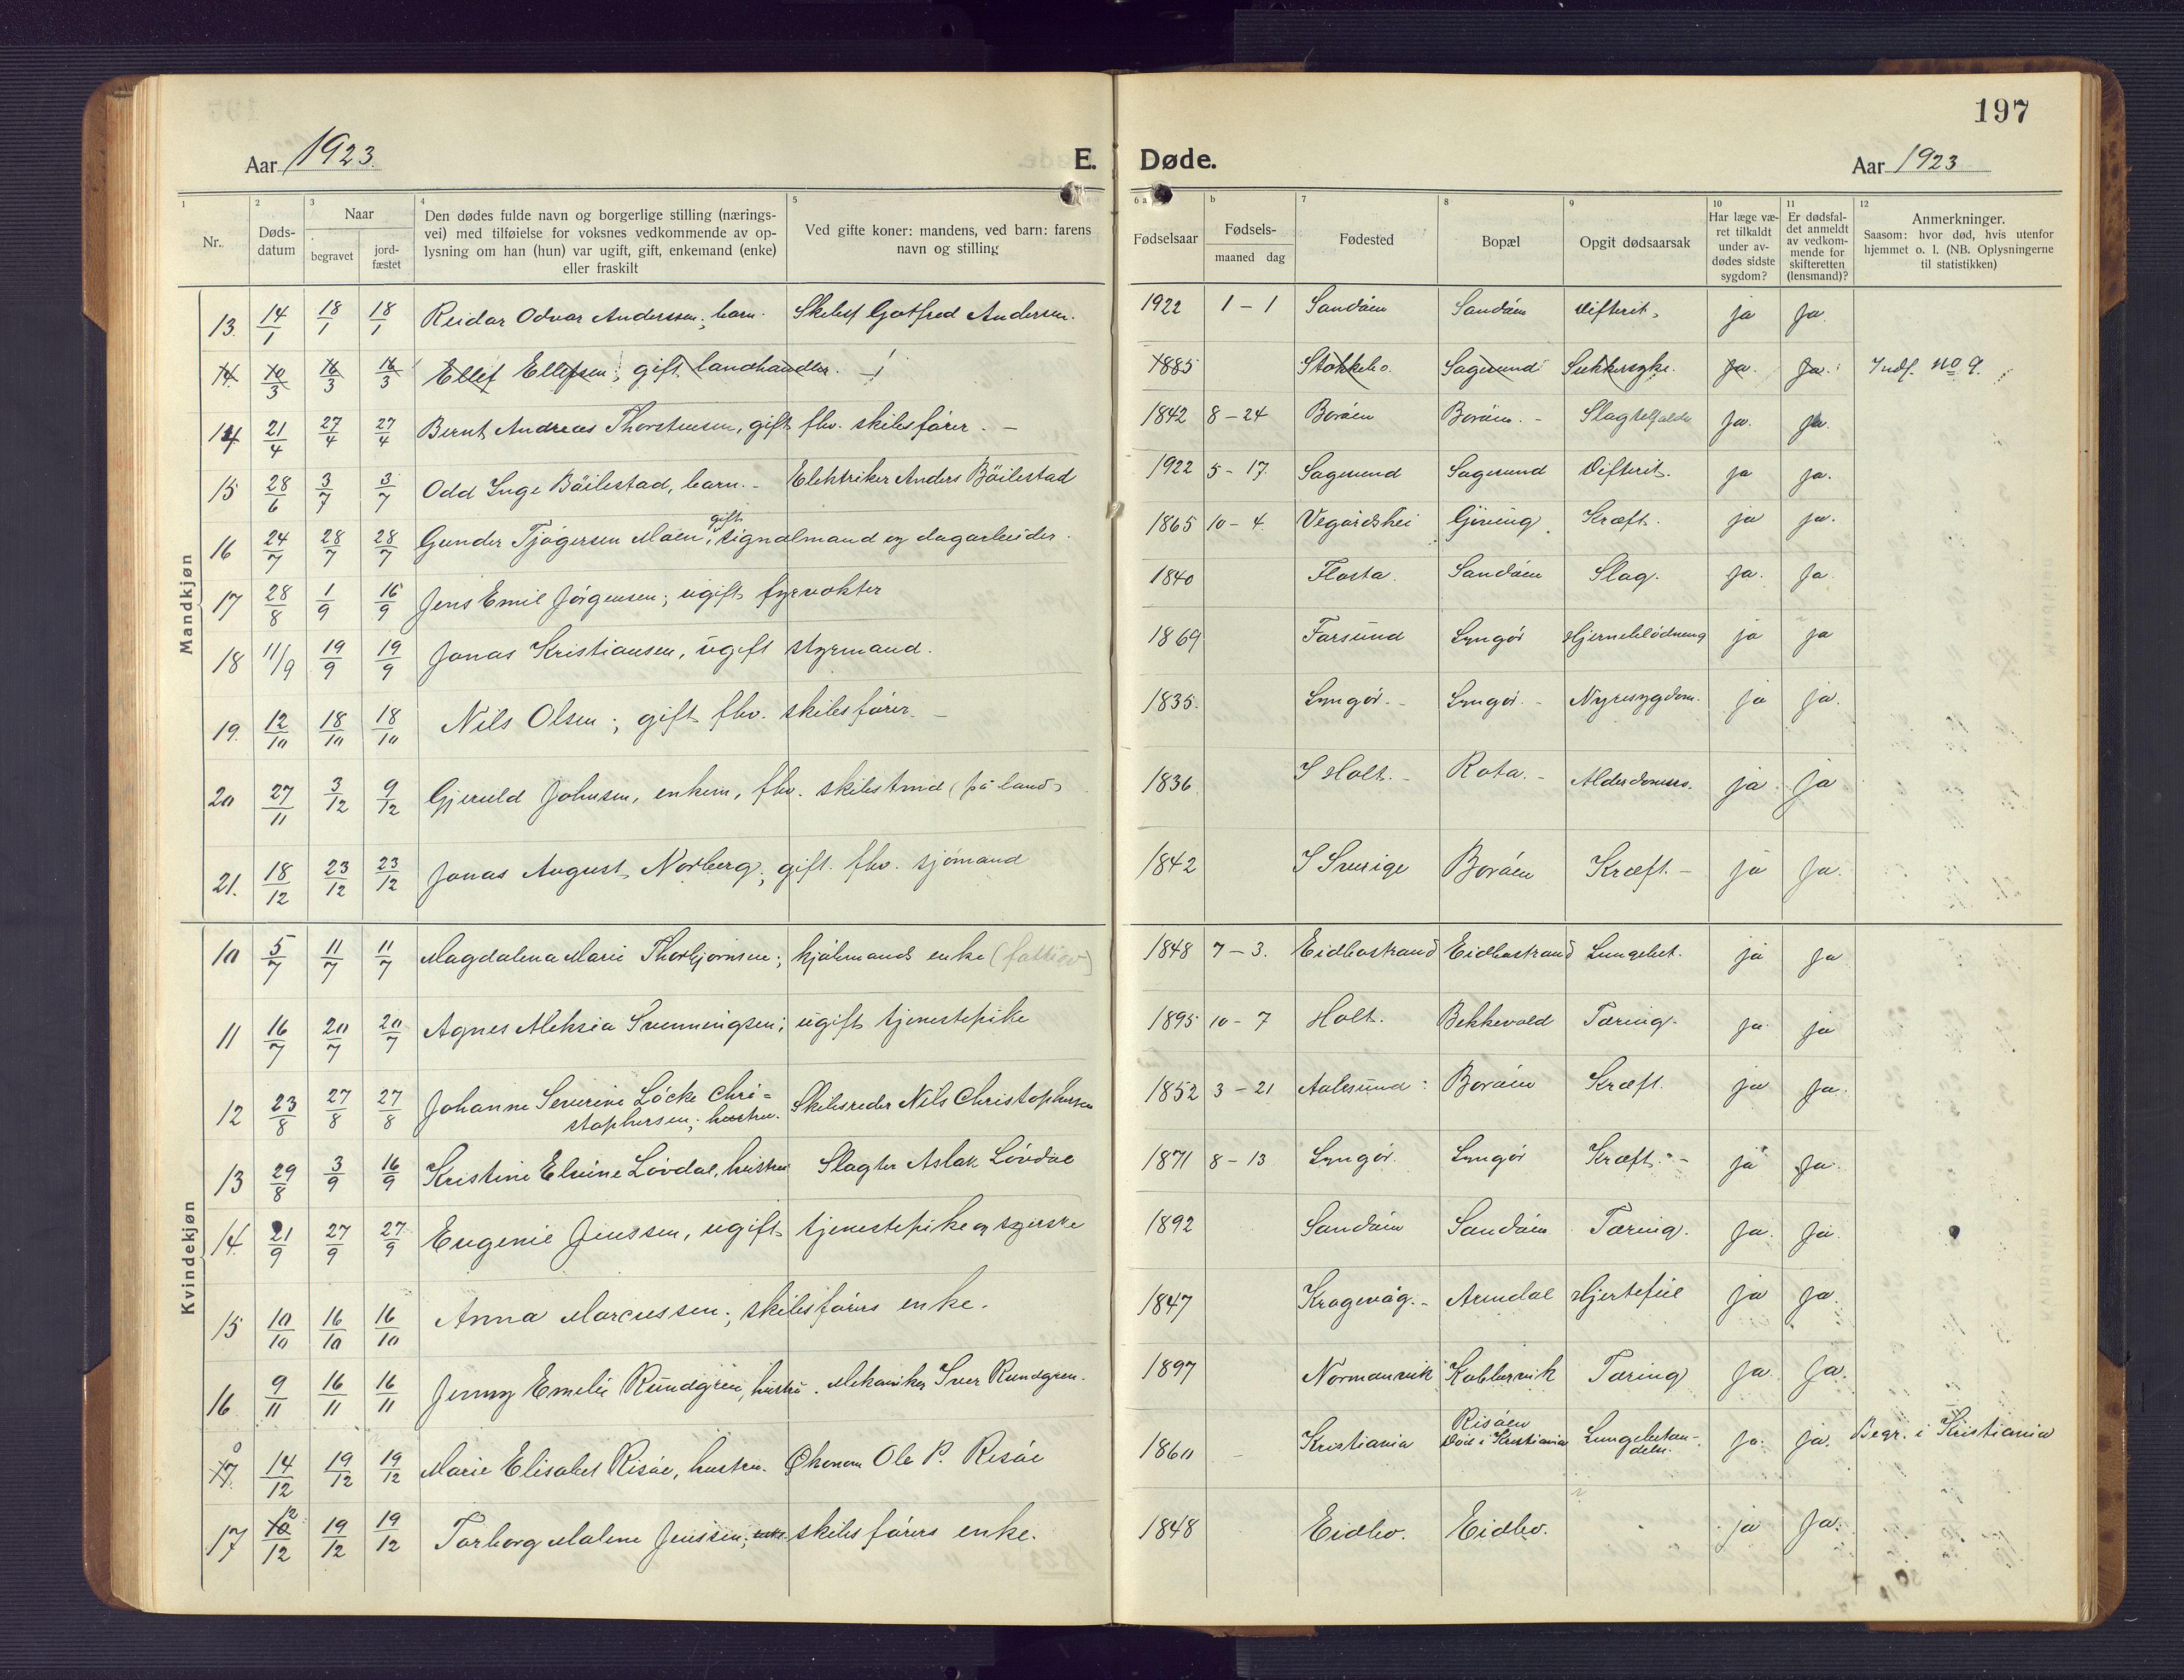 197
Aar 1923.
E. Døde.
Aar 1923
1 Nr.
2 Døds-datum
3 Naar
begravet
jord-fæstet
4 Den dødes fulde navn og borgerlige stilling (nærings-
vei) med tilføielse for voksnes vedkommende av op-
lysning om han (hun) var ugift, gift, enkemand (enke)
eller fraskilt
5 Ved gifte koner: mandens, ved barn: farens
navn og stilling
6 a Fødselsaar
b Fødsels-
maaned dag
7 Fødested
8 Bopæl
9 Opgit dødsaarsak
10 Har læge væ-
ret tilkaldt
under av-
dødes sidste
sygdom?
11 Er dødsfal-
det anmeldt
av vedkom-
mende for
skifteretten
(lensmand)?
12 Anmerkninger.
Saasom: hvor død, hvis utenfor
hjemmet o. l. (NB. Oplysningerne
til statistikken)
Mandkjøn
13. 14/1 18/1 18/1 Reidar Odvar Anderssen; barn. Skibsf Gotfred Andersen. 1922 1 - 1 Sandøen Sandøen Difterit. ja Ja.
14. 10/3 16/3 16/3 Ellef Ellefsen; gift landhandler. 1885 Stokkebo. Sagesund Sukkersyke. Ja. Ja. Indf. no 9.
14 21/4 27/4 27/4 Bernt Andreas Thorstensen, gift fhv. skibsfører. - 1842 8 - 24 Borøen Borøen. - Slagtilfælde Ja. Ja.
15 28/6 3/7 3/7 Odd Inge Bøilestad, barn. - Elektriker Anders Bøilestad 1922 5 - 17 Sagesund Sagesund Difterit. ja ja.
16 24/7 28/7 28/7 Gunder Tjøgersen Moen, gift signalmand og dagarbeider. 1865 10 - 4. Vegårdshei Gjeving Kræft. ja ja.
17 28/8 1/9 16/9 Jens Emil Jørgensen; ugift fyrvokter 1840 Flosta. Sandøen Slag. ja. ja.
18 11/9 19/9 19/9 Jonas Kristiansen, ugift styrmand. 1869 Farsund Lyngør Hjerneblødning ja ja
19. 12/10 18/10 18/10 Nils Olsen; gift fhv. skibsfører. - 1835. Lyngør. - Lyngør. - Nyresygdom. ja ja.
20 27/11 3/12 9/12 Gjeruld Johnsen, enkem, fhv. skibstmd (på land) 1836 I Holt. - Rota. - Alderdomss. ja ja
21. 18/12 23/12 23/12 Jonas August Norberg; gift. fhv. sjømand 1842 I Sverige Borøen Kræft. - ja Ja.
Kvindekjøn
10 5/7 11/7 11/7 Magdalena Marie Thorbjørnsen; kjølmands enke (fattiov) 1848 7 - 3. Eidbostrand Eidbostrand Lungebet. ja ja
11 16/7 20/7 20/7 Agnes Aleksia Svenningsen; ugift tjenestepike 1895 10 - 7 Holt. Bekkevold Tæring. ja ja
12 23/8 27/8 27/8 Johanne Severine Løcke Chri=
stophersen; hustru. Skibsreder Nils Christophersen 1852 3 - 21 Aalesund Borøen Kræft. ja ja.
13 29/8 3/9 16/9 Kristine Elvine Løvdal, hustru Slagter Aslak Løvdal 1871 8 - 13 Lyngør. Lyngør Kræft. - ja ja.
14. 21/9 27/9 27/9 Eugenie Jenssen, ugift tjenestepike og syerske 1892 Sandøen Sandøen Tæring. Ja. ja.
15 10/10 16/10 16/10 Anna Marcussen; skibsførers enke. 1847 Kragevåg. - Arendal Hjertefeil ja ja.
16 9/11 16/11 16/11 Jenny Emelie Rundgren, hustru. Mekaniker Iver Rundgren. 1897 Normanvik Kabbervik Tæring ja Ja.
17. 14/12 19/12 19/12 Marie Elisabet Risøe, hustru. Økonom Ole P. Risøe 1860 Kristiania Risøen
Død i Kristiania Lungebetæn-
delse. Ja. ja. Begr. i Kristiania
17 12/12 19/12 19/12 Torborg Malene Jenssen; enke skibsførers enke. 1848 Eidbo. Eidbo. ja Ja.